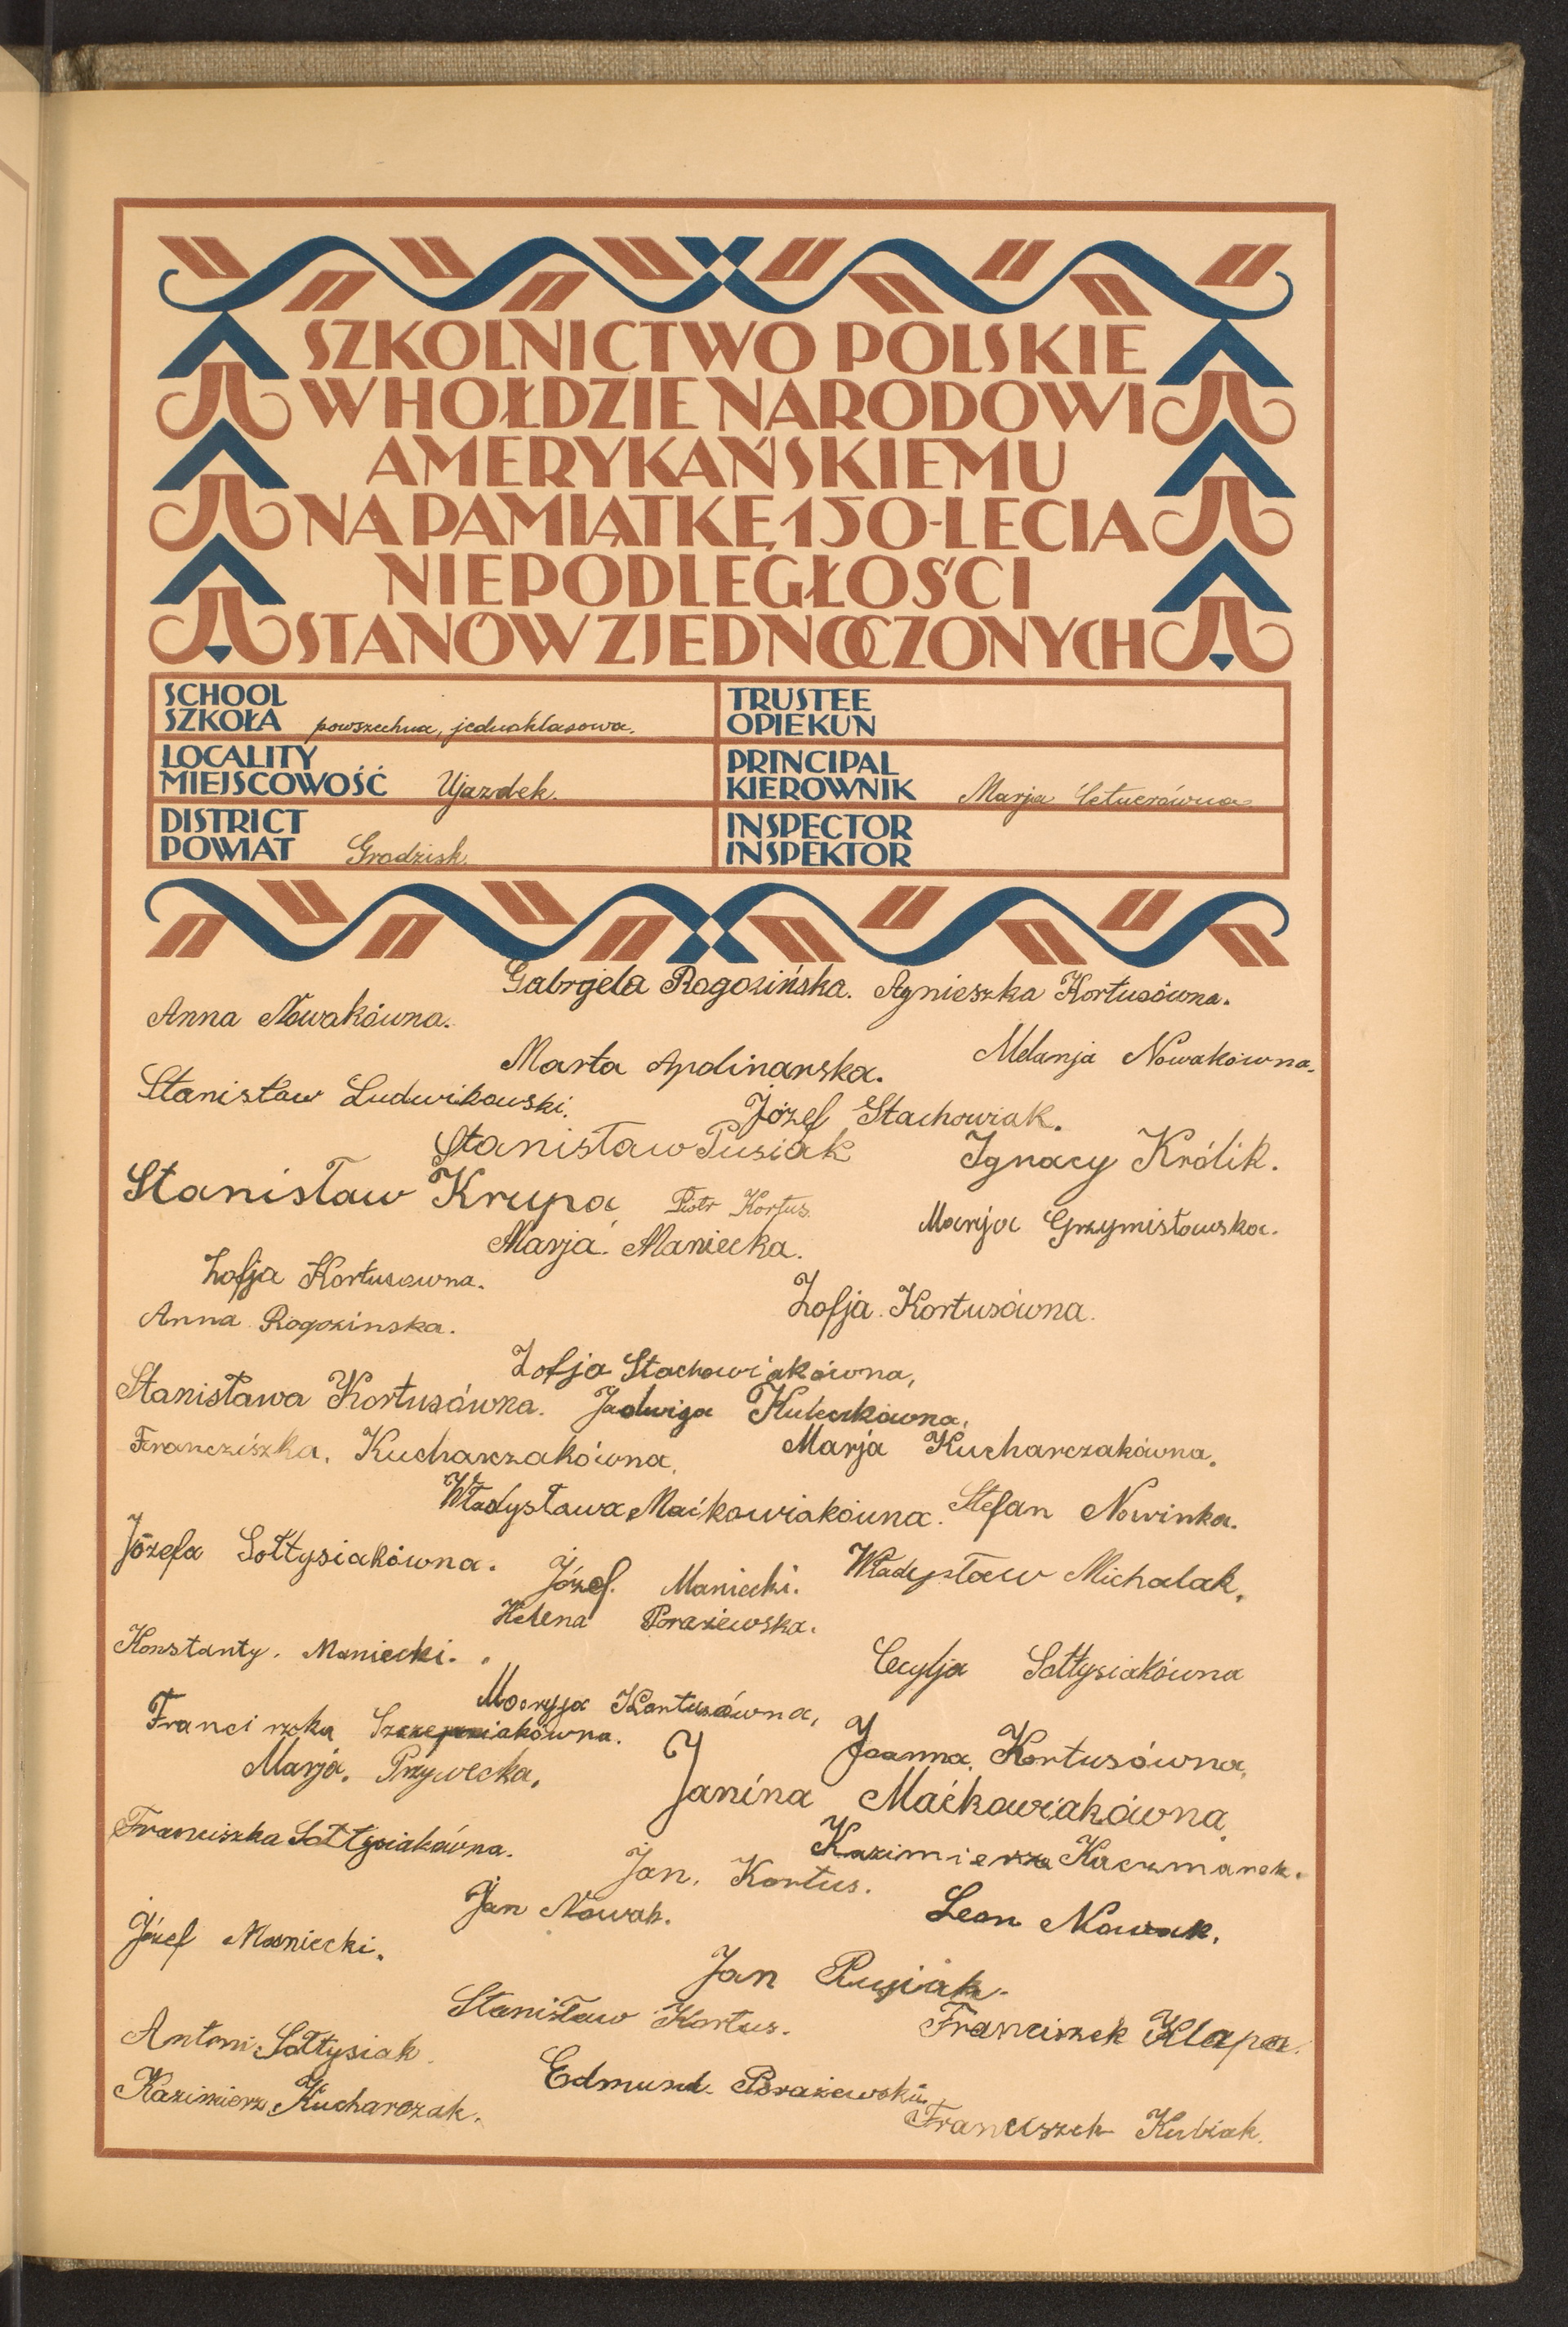 SZKOLNICTWO POLSKIE
W HOŁDZIE NARODOWI
AMERYKAŃSKIEMU
NA PAMIĄTKĘ 150-LECIA
NIEPODLEGŁOŚCI
STANÓW ZJEDNOCZONYCH
SCHOOL
SZKOŁA powszechna, jednoklasowa.
TRUSTEE
OPIEKUN
LOCALITY
MIEJSCOWOŚĆ Ujazdek.
PRINCIPAL
KIEROWNIK Marja
DISTRICT
POWIAT Grodzisk.
INSPECTOR
INSPEKTOR
Gabrjela Rogozińska. Agnieszka Kortusówna.
Anna Nowakówna.
Marta Apolinarska. Melanja Nowakówna.
Stanisław Ludwikowski.
Józef Stachowiak.
Stanisław Pusiak Ignacy Królik.
Stanisław Krupa Piotr Kortus.
Marja Grzymisławska.
Marja Maniecka.
Zofja Kortusowna.
Zofja Kortusówna.
Anna Rogozinska.
Zofja Stachowiakówna,
Stanisława Kortusówna. Jadwiga Kuleczkówna.
Franciszka. Kucharczakówna. Marja Kucharczakówna.
Władysława Maćkowiakówna. Stefan Nowinka.
Józefa Sołtysiakówna.
Józef. Maniecki. Władysław Michalak.
Helena Porażewska.
Konstanty. Maniecki.
Cecylja Sołtysiakówna
Maryja Kortusówna,
Franciszka Szczepaniakówna.
Joanna. Kortusówna.
Marja. Przywecka.
Janina Maćkowiakówna.
Franciszka Sołtysiakówna.
Kazimierz Kaczmarek.
Jan. Kortus.
Jan Nowak.
Leon Nowak.
Józef Maniecki.
Jan Pusiak.
Stanisław Kortus. Franciszek Klapa.
Antoni Sołtysiak.
Edmund Porażewski.
Kazimierz Kucharczak.
Franciszek Kubiak.